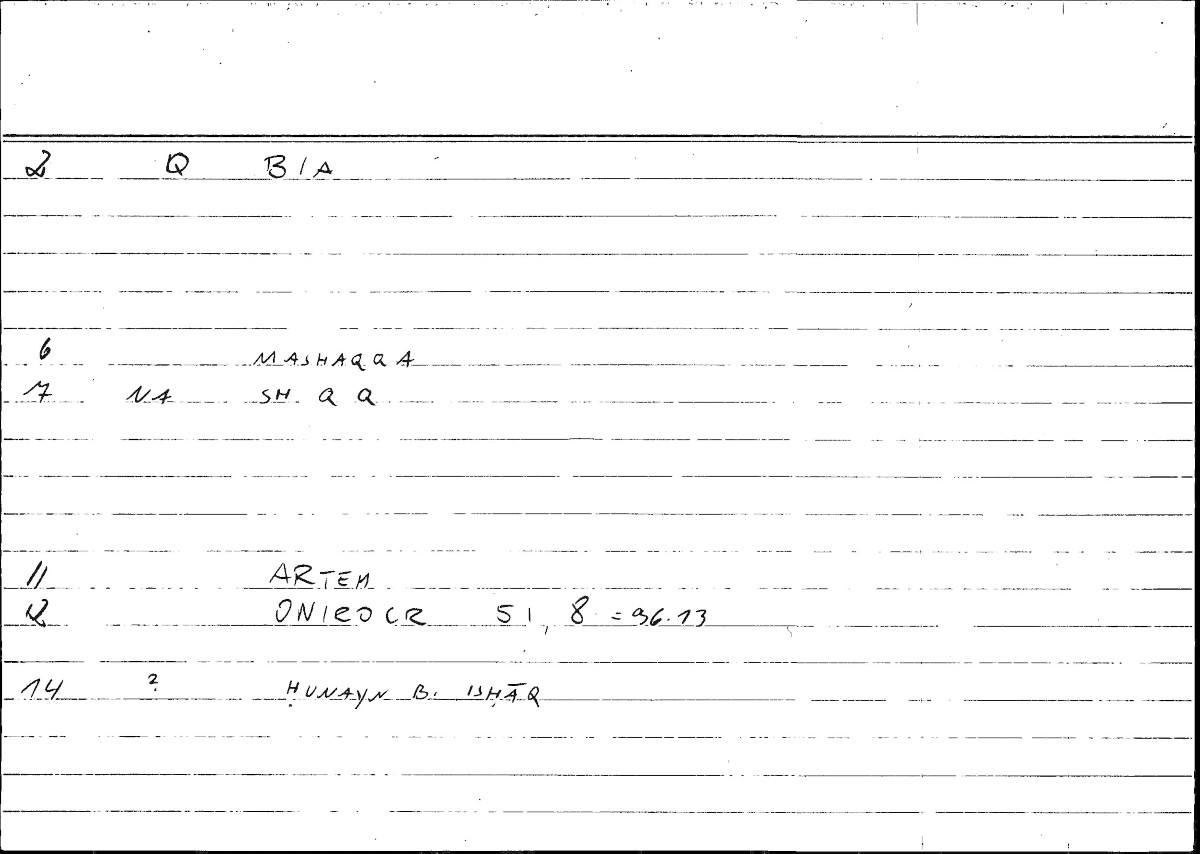 2 Q B/A
6 MASHAQQA
7 NA SH Q Q
11 ARTEM
12 ONIROCR 51, 8 = 96.13
14 ? ḤUNAYN B. ISḤĀQ